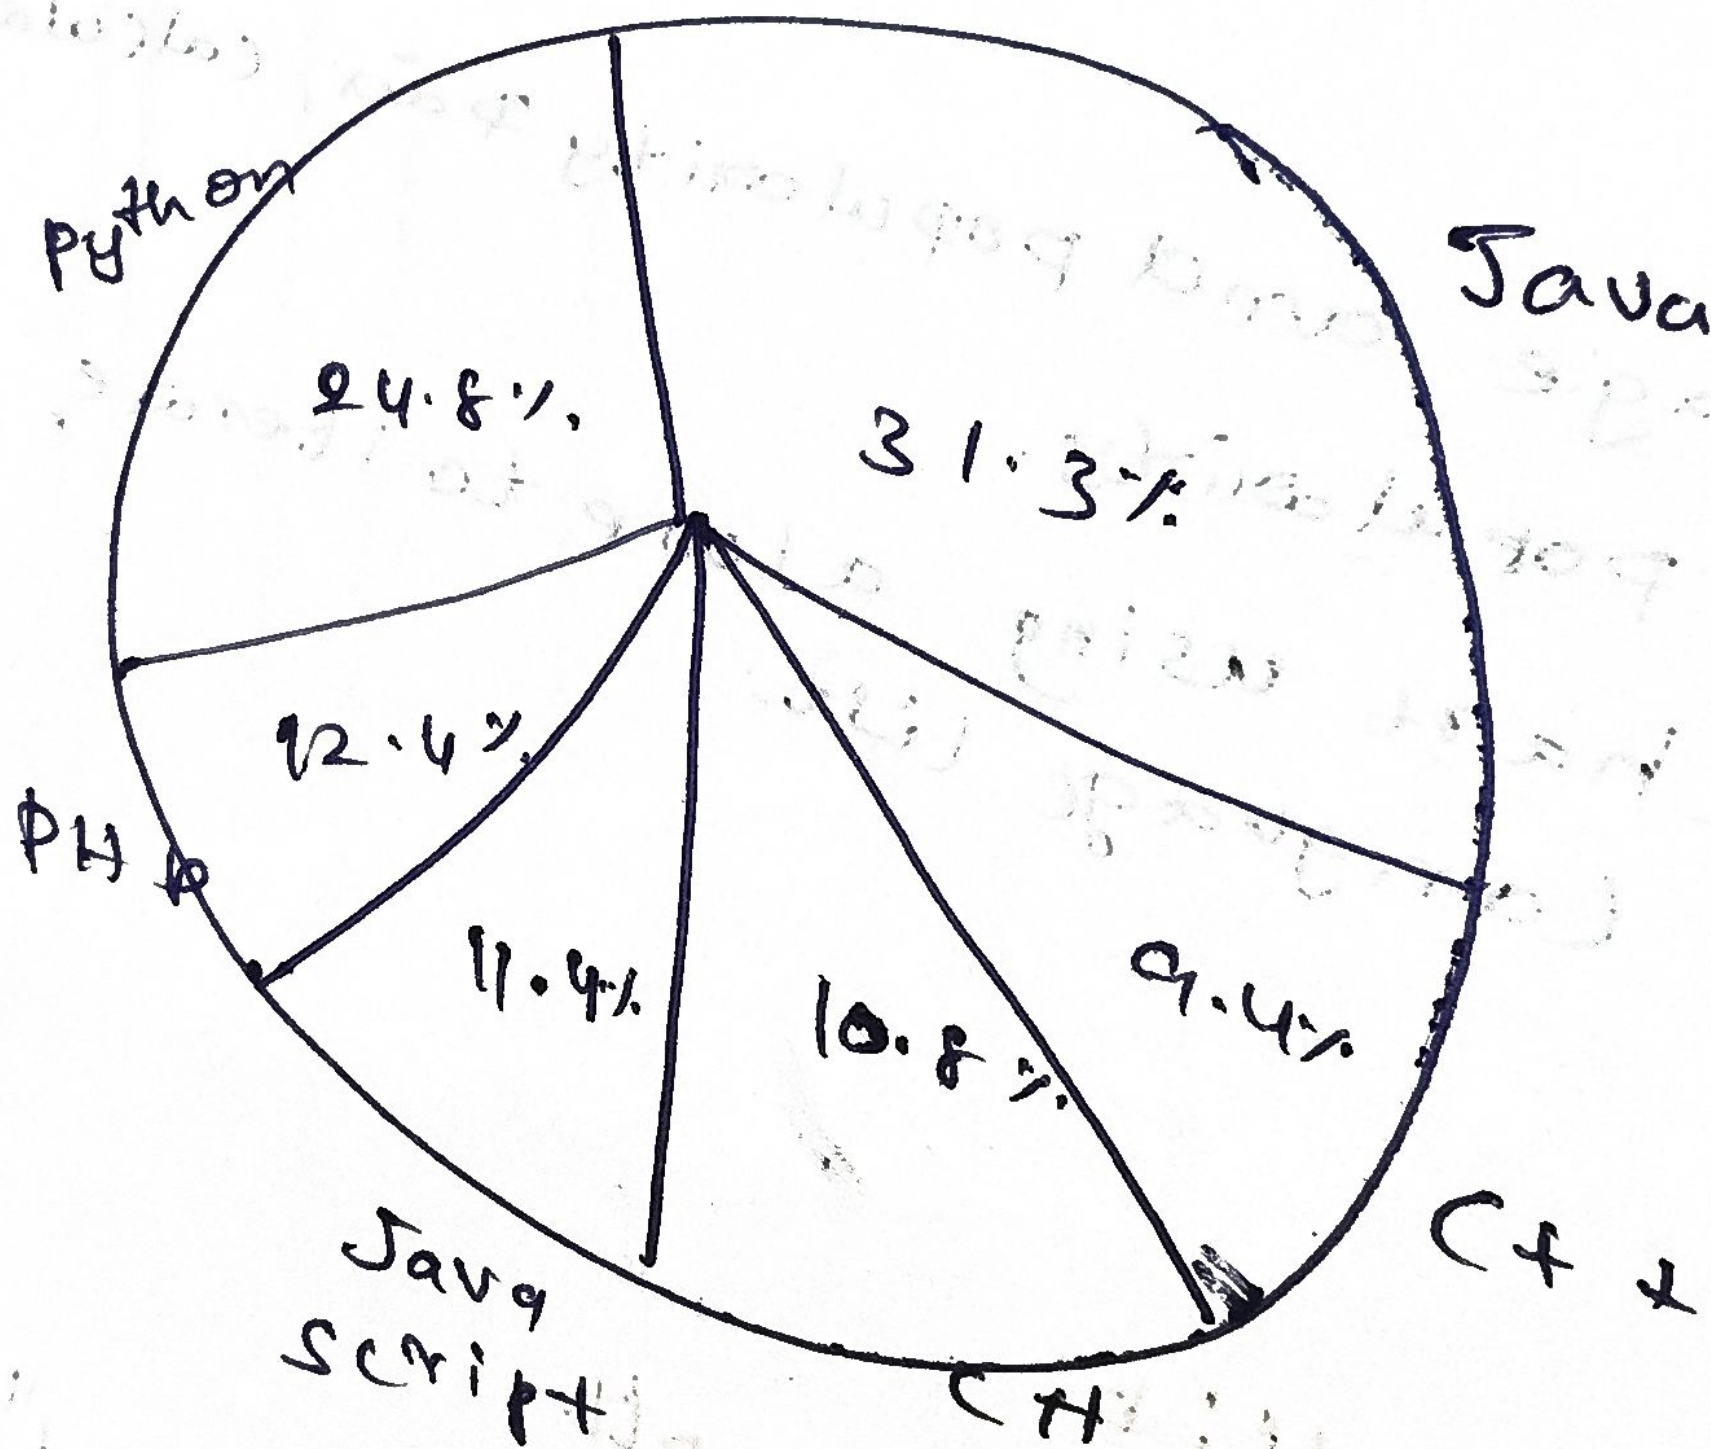 Python
Java
24.8%
31.3%
12.4%
PHP
11.4%
10.8%
9.4%
Java
Script
C#
C++